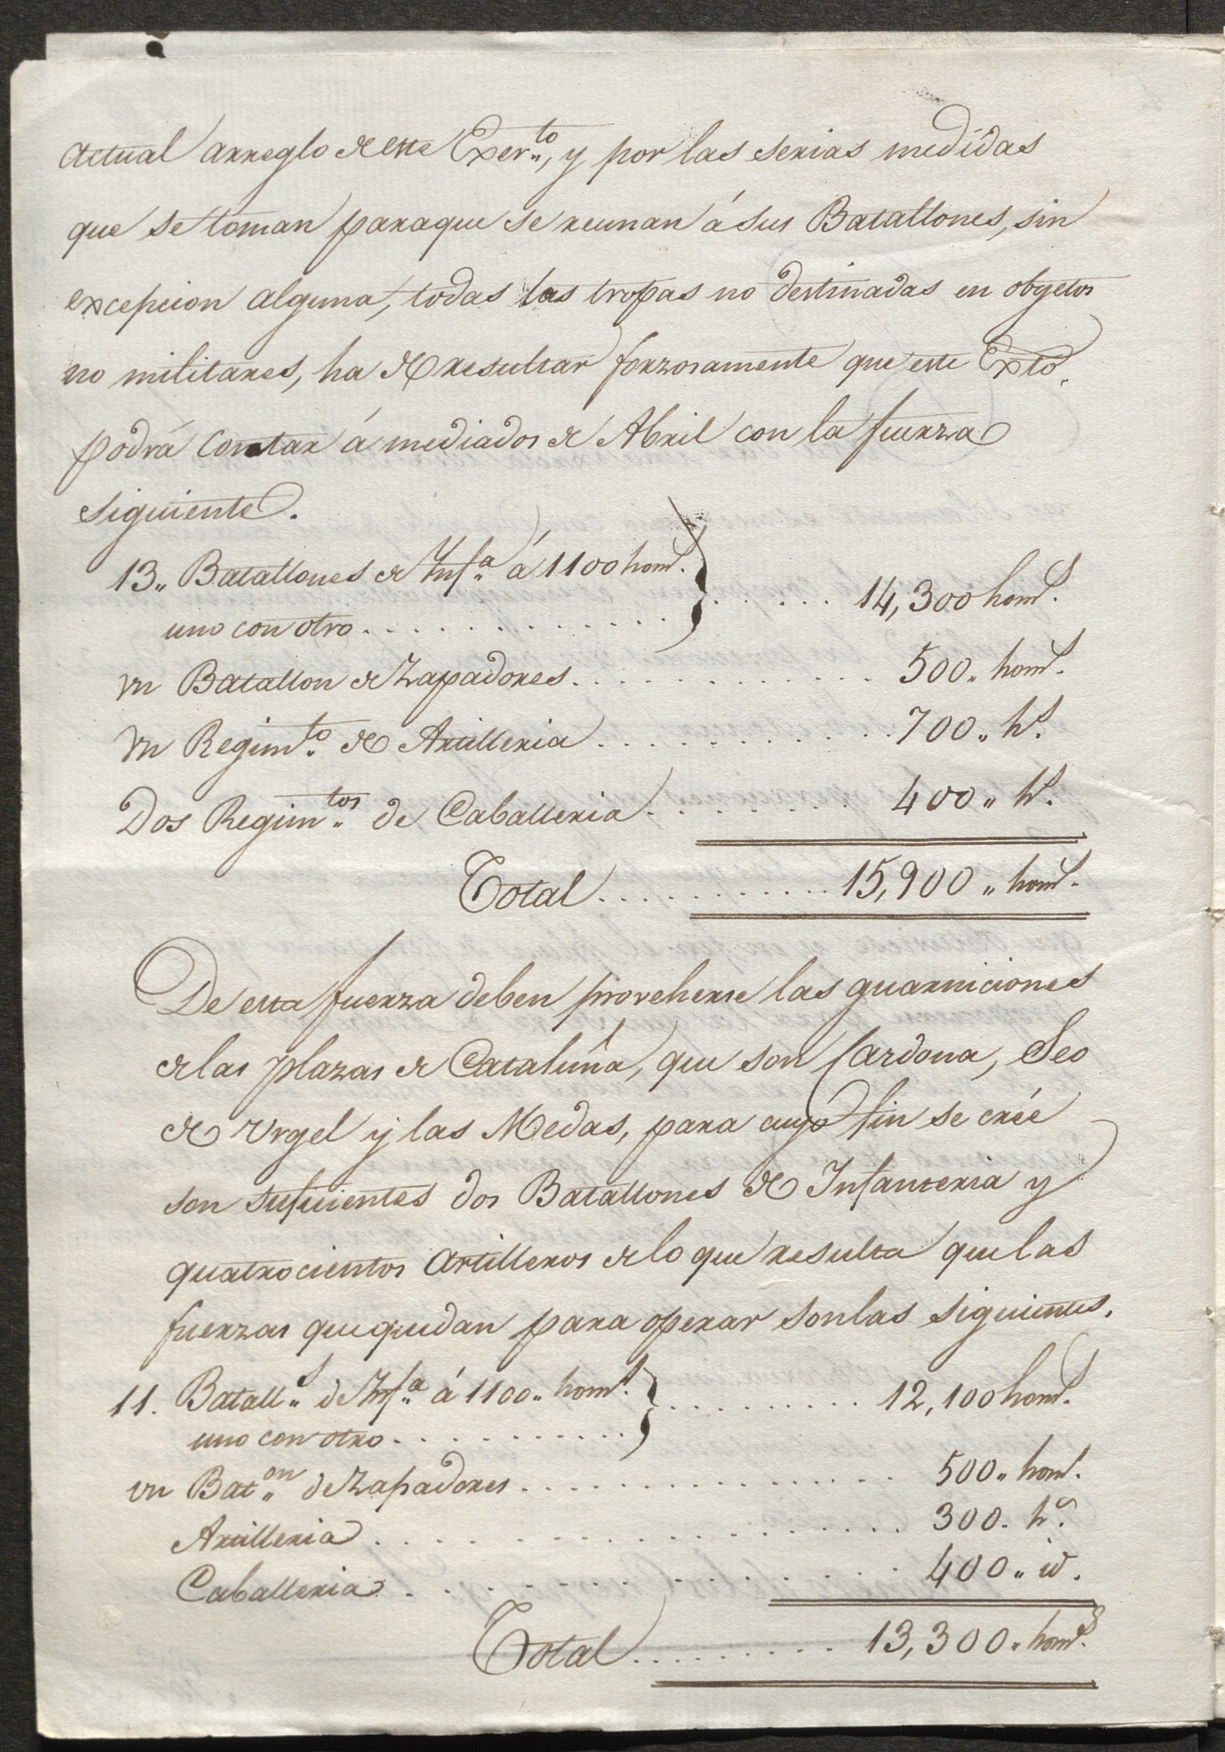 actual arreglo de este Exer.to, y por las serias medidas
que se toman paraque se reunan á sus Batallones, sin
excepcion alguna, todas las tropas no destinadas en obgetos
no militares, ha de resultar forzosamente que este Exto.
podrá contar á mediados de Abril con la fuerza
siguiente.
13,, Batallones de Inf.a á 1100 hom.s
uno con otro . . . . . . . . . . . . } . . . . . . 14,300 hom.s
un Batallon de Zapadores . . . . . . . . . . . . 500,, hom.s
un Regim.to de Artilleria . . . . . . . . . . . . 700,, h.s
Dos Regim.tos de Caballeria . . . . . . . . 400,, h.s
Total . . . . . . . . . . . . 15,900,, hom.s
De esta fuerza deben proveherse las guarniciones
de las plazas de Cataluña, que son Cardona, Seo
de Urgel y las Medas, para cuyo fin se crée
son suficientes dos Batallones de Infanteria y
quatrocientos artilleros de lo que resulta que las
fuerzas que quedan para operar son las siguientes.
11. Batall.s de Inf.a á 1100,, hom.s
uno con otro . . . . . . . . . . . } . . . . . . . . . 12,100 hom.s
un Bat.on de Zapadores . . . . . . . . . . . . . . . 500,, hom.s
Artilleria . . . . . . . . . . . . . . . . . . 300. h.s
Caballeria . . . . . . . . . . . . . . . . . 400,, id.
Total . . . . . . . . . 13,300,, hom.s